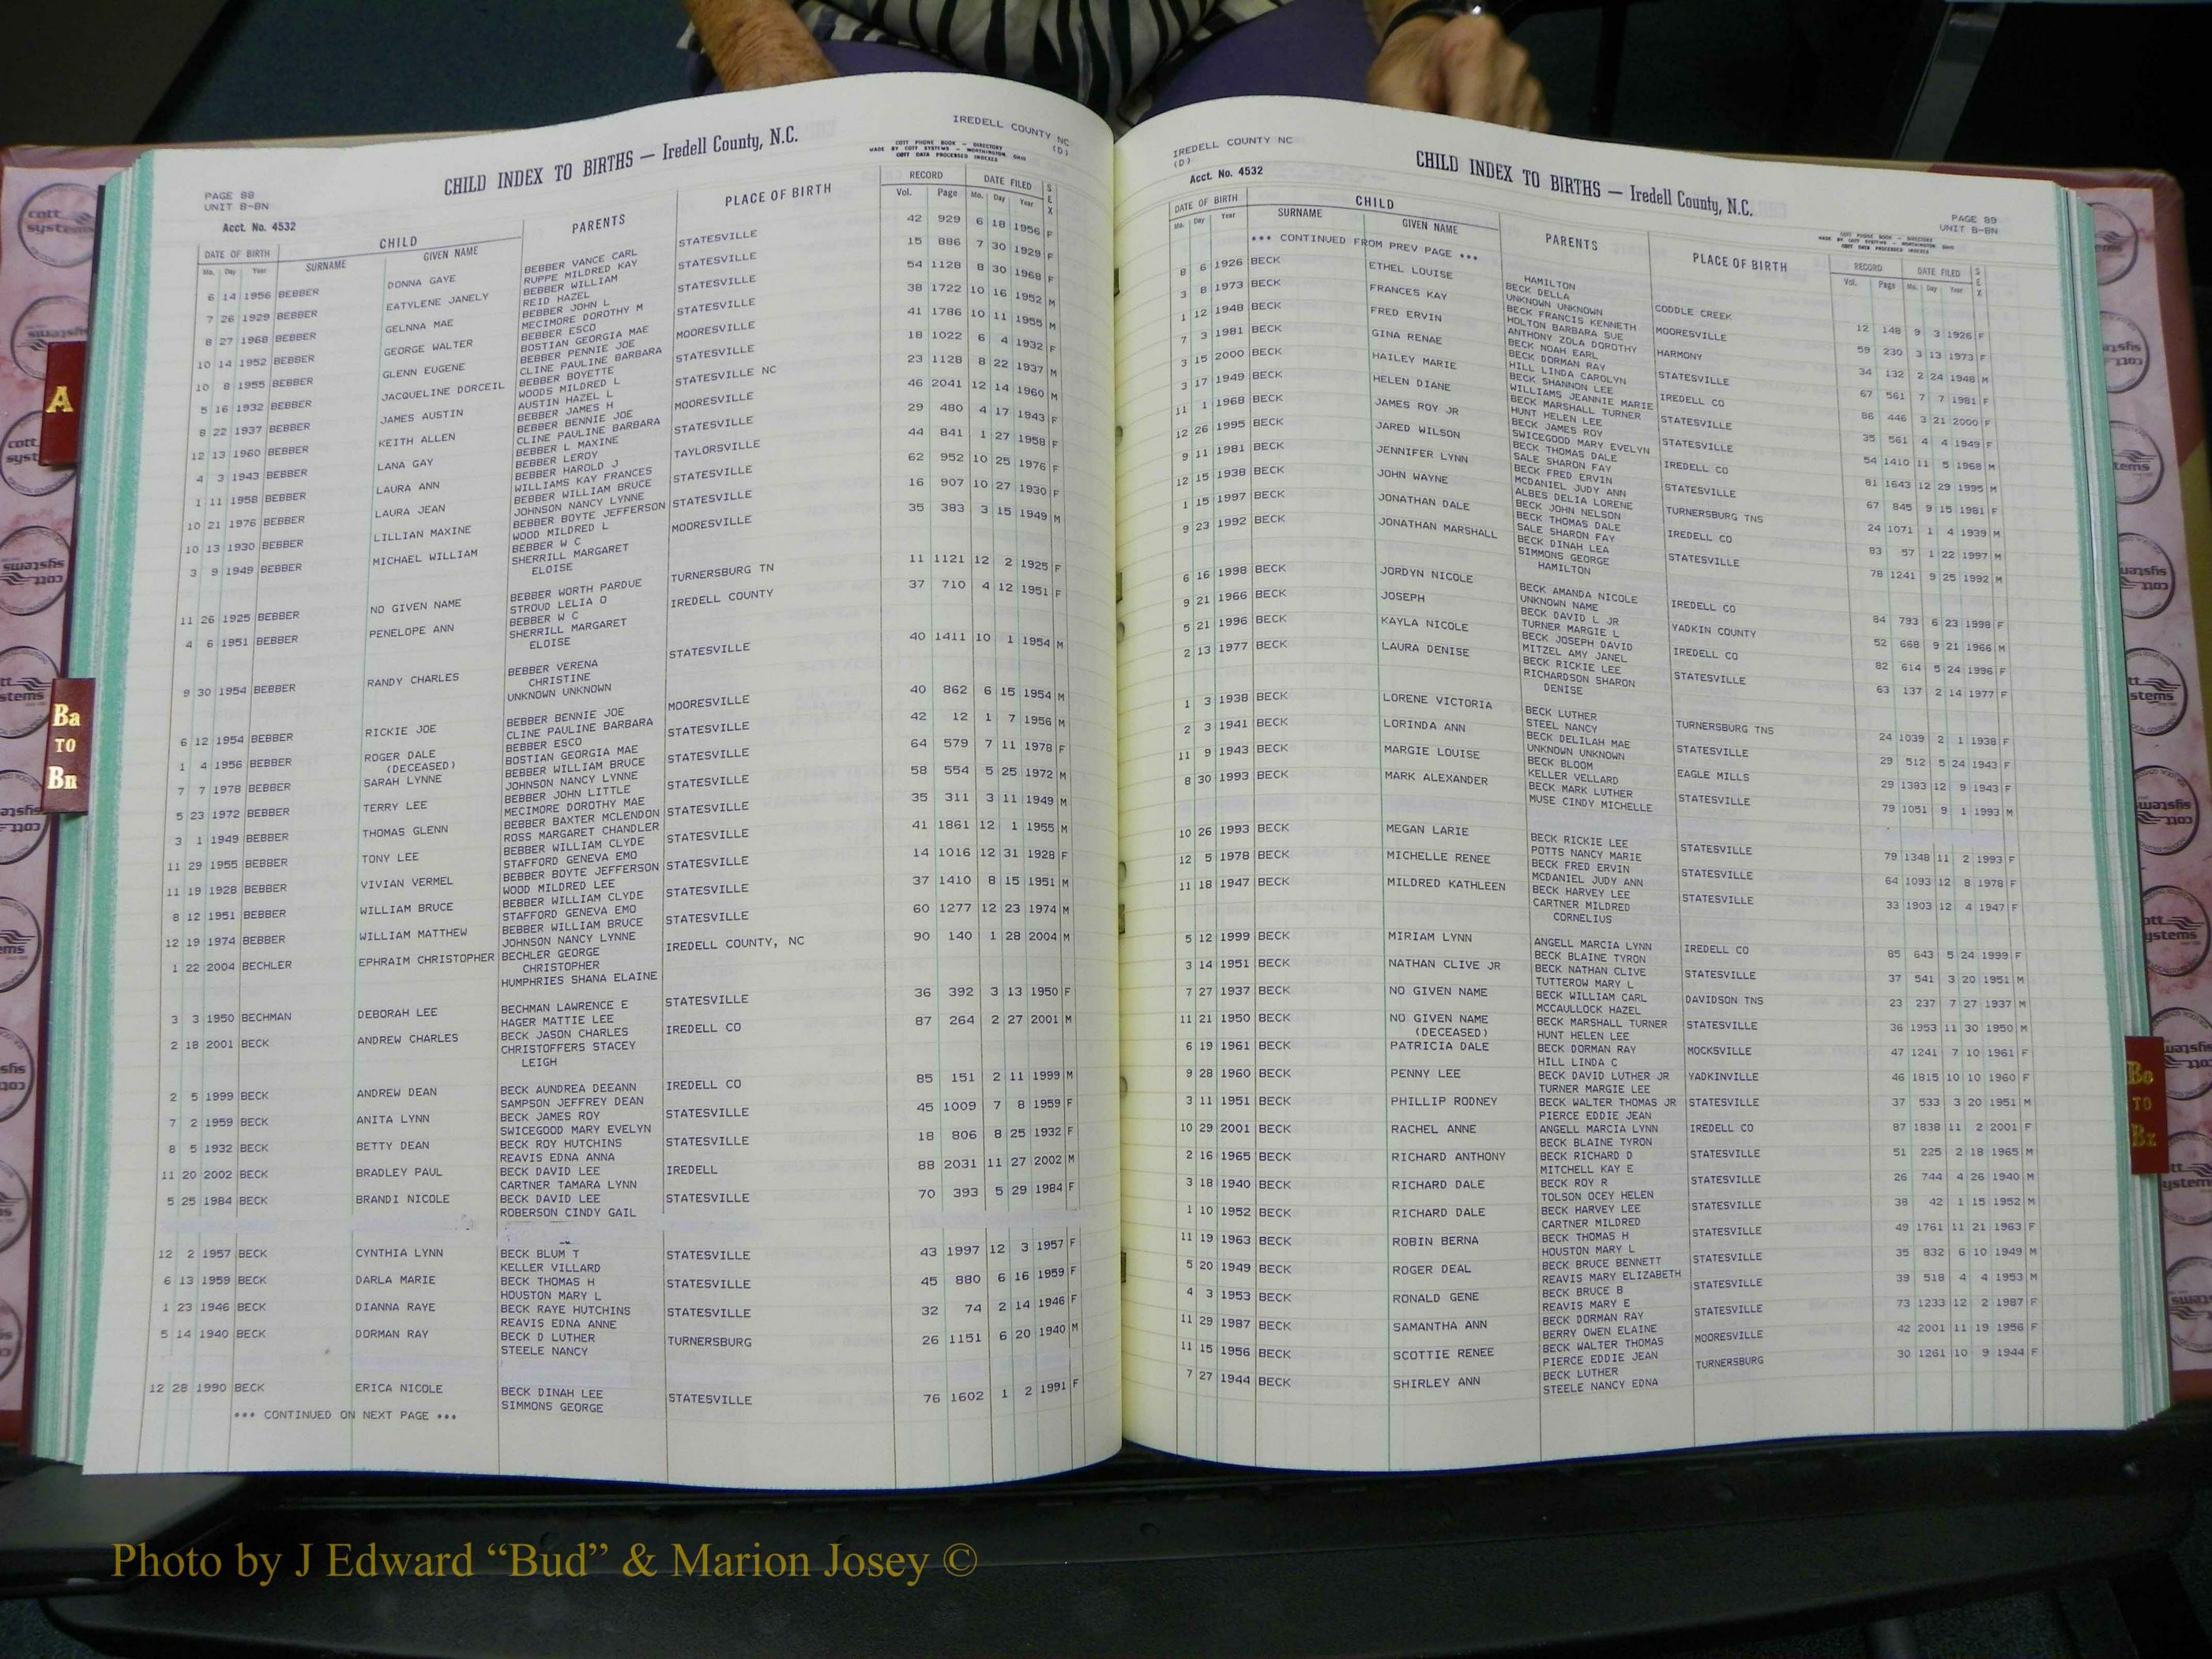 IREDELL COUNTY NC
(D)
CHILD INDEX TO BIRTHS — Iredell County, N.C.
COTT PHONE BOOK — DIRECTORY
MADE BY COTT SYSTEMS — WORTHINGTON OHIO
COTT DATA PROCESSED INDEXES
PAGE 88
UNIT B-BN
Acct. No. 4532
DATE OF BIRTH CHILD PARENTS PLACE OF BIRTH RECORD DATE FILED SEX
Mo. Day Year SURNAME GIVEN NAME Vol. Page Mo. Day Year
6 14 1956 BEBBER DONNA GAYE BEBBER VANCE CARL STATESVILLE 42 929 6 18 1956 F
RUPPE MILDRED KAY
7 26 1929 BEBBER EATYLENE JANELY BEBBER WILLIAM STATESVILLE 15 886 7 30 1929 F
REID HAZEL
8 27 1968 BEBBER GELNNA MAE BEBBER JOHN L STATESVILLE 54 1128 8 30 1968 F
MECIMORE DOROTHY M
10 14 1952 BEBBER GEORGE WALTER BEBBER ESCO STATESVILLE 38 1722 10 16 1952 M
BOSTIAN GEORGIA MAE
10 8 1955 BEBBER GLENN EUGENE BEBBER PENNIE JOE MOORESVILLE 41 1786 10 11 1955 M
CLINE PAULINE BARBARA
5 16 1932 BEBBER JACQUELINE DORCEIL BEBBER BOYETTE STATESVILLE 18 1022 6 4 1932 F
WOODS MILDRED L
8 22 1937 BEBBER JAMES AUSTIN AUSTIN HAZEL L STATESVILLE NC 23 1128 8 22 1937 M
BEBBER JAMES H
12 13 1960 BEBBER KEITH ALLEN BEBBER BENNIE JOE MOORESVILLE 46 2041 12 14 1960 M
CLINE PAULINE BARBARA
4 3 1943 BEBBER LANA GAY BEBBER L MAXINE STATESVILLE 29 480 4 17 1943 F
1 11 1958 BEBBER LAURA ANN BEBBER LEROY TAYLORSVILLE 44 841 1 27 1958 F
10 21 1976 BEBBER LAURA JEAN BEBBER HAROLD J STATESVILLE 62 952 10 25 1976 F
WILLIAMS KAY FRANCES
10 13 1930 BEBBER LILLIAN MAXINE BEBBER WILLIAM BRUCE STATESVILLE 16 907 10 27 1930 F
JOHNSON NANCY LYNNE
3 9 1949 BEBBER MICHAEL WILLIAM BEBBER BOYTE JEFFERSON MOORESVILLE 35 383 3 15 1949 M
WOOD MILDRED L
BEBBER W C
SHERRILL MARGARET
ELOISE
11 26 1925 BEBBER NO GIVEN NAME BEBBER WORTH PARDUE TURNERSBURG TN 11 1121 12 2 1925 F
STROUD LELIA O
4 6 1951 BEBBER PENELOPE ANN BEBBER W C IREDELL COUNTY 37 710 4 12 1951 F
SHERRILL MARGARET
ELOISE
9 30 1954 BEBBER RANDY CHARLES BEBBER VERENA STATESVILLE 40 1411 10 1 1954 M
CHRISTINE
UNKNOWN UNKNOWN
6 12 1954 BEBBER RICKIE JOE BEBBER BENNIE JOE MOORESVILLE 40 862 6 15 1954 M
CLINE PAULINE BARBARA
1 4 1956 BEBBER ROGER DALE BEBBER ESCO STATESVILLE 42 12 1 7 1956 M
(DECEASED) BOSTIAN GEORGIA MAE
7 7 1978 BEBBER SARAH LYNNE BEBBER WILLIAM BRUCE STATESVILLE 64 579 7 11 1978 F
JOHNSON NANCY LYNNE
5 23 1972 BEBBER TERRY LEE BEBBER JOHN LITTLE STATESVILLE 58 554 5 25 1972 M
MECIMORE DOROTHY MAE
3 1 1949 BEBBER THOMAS GLENN BEBBER BAXTER MCLENDON STATESVILLE 35 311 3 11 1949 M
ROSS MARGARET CHANDLER
11 29 1955 BEBBER TONY LEE BEBBER WILLIAM CLYDE STATESVILLE 41 1861 12 1 1955 M
STAFFORD GENEVA EMO
11 19 1928 BEBBER VIVIAN VERMEL BEBBER BOYTE JEFFERSON STATESVILLE 14 1016 12 31 1928 F
WOOD MILDRED LEE
8 12 1951 BEBBER WILLIAM BRUCE BEBBER WILLIAM CLYDE STATESVILLE 37 1410 8 15 1951 M
STAFFORD GENEVA EMO
12 19 1974 BEBBER WILLIAM MATTHEW BEBBER WILLIAM BRUCE STATESVILLE 60 1277 12 23 1974 M
JOHNSON NANCY LYNNE
1 22 2004 BECHLER EPHRAIM CHRISTOPHER BECHLER GEORGE IREDELL COUNTY, NC 90 140 1 28 2004 M
CHRISTOPHER
HUMPHRIES SHANA ELAINE
3 3 1950 BECHMAN DEBORAH LEE BECHMAN LAWRENCE E STATESVILLE 36 392 3 13 1950 F
HAGER MATTIE LEE
2 18 2001 BECK ANDREW CHARLES BECK JASON CHARLES IREDELL CO 87 264 2 27 2001 M
CHRISTOFFERS STACEY
LEIGH
2 5 1999 BECK ANDREW DEAN BECK AUNDREA DEEANN IREDELL CO 85 151 2 11 1999 M
SAMPSON JEFFREY DEAN
7 2 1959 BECK ANITA LYNN BECK JAMES ROY STATESVILLE 45 1009 7 8 1959 F
SWICEGOOD MARY EVELYN
8 5 1932 BECK BETTY DEAN BECK ROY HUTCHINS STATESVILLE 18 806 8 25 1932 F
REAVIS EDNA ANNA
11 20 2002 BECK BRADLEY PAUL BECK DAVID LEE IREDELL 88 2031 11 27 2002 M
CARTNER TAMARA LYNN
5 25 1984 BECK BRANDI NICOLE BECK DAVID LEE STATESVILLE 70 393 5 29 1984 F
ROBERSON CINDY GAIL
12 2 1957 BECK CYNTHIA LYNN BECK BLUM T STATESVILLE 43 1997 12 3 1957 F
KELLER VILLARD
6 13 1959 BECK DARLA MARIE BECK THOMAS H STATESVILLE 45 880 6 16 1959 F
HOUSTON MARY L
1 23 1946 BECK DIANNA RAYE BECK RAYE HUTCHINS STATESVILLE 32 74 2 14 1946 F
REAVIS EDNA ANNE
5 14 1940 BECK DORMAN RAY BECK D LUTHER TURNERSBURG 26 1151 6 20 1940 M
STEELE NANCY
12 28 1990 BECK ERICA NICOLE BECK DINAH LEE STATESVILLE 76 1602 1 2 1991 F
SIMMONS GEORGE
*** CONTINUED ON NEXT PAGE ***
IREDELL COUNTY NC
(D)
Acct. No. 4532
CHILD INDEX TO BIRTHS — Iredell County, N.C.
PAGE 89
UNIT B-BN
COTT PHONE BOOK — DIRECTORY
MADE BY COTT SYSTEMS — WORTHINGTON OHIO
COTT DATA PROCESSED INDEXES
DATE OF BIRTH CHILD PARENTS PLACE OF BIRTH RECORD DATE FILED SEX
Mo. Day Year SURNAME GIVEN NAME Vol. Page Mo. Day Year
*** CONTINUED FROM PREV PAGE ***
HAMILTON
8 6 1926 BECK ETHEL LOUISE BECK DELLA CODDLE CREEK 12 148 9 3 1926 F
UNKNOWN UNKNOWN
3 8 1973 BECK FRANCES KAY BECK FRANCIS KENNETH MOORESVILLE 59 230 3 13 1973 F
HOLTON BARBARA SUE
1 12 1948 BECK FRED ERVIN ANTHONY ZOLA DOROTHY HARMONY 34 132 2 24 1948 M
BECK NOAH EARL
7 3 1981 BECK GINA RENAE BECK DORMAN RAY STATESVILLE 67 561 7 7 1981 F
HILL LINDA CAROLYN
3 15 2000 BECK HAILEY MARIE BECK SHANNON LEE IREDELL CO 86 446 3 21 2000 F
WILLIAMS JEANNIE MARIE
3 17 1949 BECK HELEN DIANE BECK MARSHALL TURNER STATESVILLE 35 561 4 4 1949 F
HUNT HELEN LEE
11 1 1968 BECK JAMES ROY JR BECK JAMES ROY STATESVILLE 54 1410 11 5 1968 M
SWICEGOOD MARY EVELYN
12 26 1995 BECK JARED WILSON BECK THOMAS DALE IREDELL CO 81 1643 12 29 1995 M
SALE SHARON FAY
9 11 1981 BECK JENNIFER LYNN BECK FRED ERVIN STATESVILLE 67 845 9 15 1981 F
MCDANIEL JUDY ANN
12 15 1938 BECK JOHN WAYNE ALBES DELIA LORENE TURNERSBURG TNS 24 1071 1 4 1939 M
BECK JOHN NELSON
1 15 1997 BECK JONATHAN DALE BECK THOMAS DALE IREDELL CO 83 57 1 22 1997 M
SALE SHARON FAY
9 23 1992 BECK JONATHAN MARSHALL BECK DINAH LEA STATESVILLE 78 1241 9 25 1992 M
SIMMONS GEORGE
HAMILTON
6 16 1998 BECK JORDYN NICOLE BECK AMANDA NICOLE IREDELL CO 84 793 6 23 1998 F
UNKNOWN NAME
9 21 1966 BECK JOSEPH BECK DAVID L JR YADKIN COUNTY 52 668 9 21 1966 M
TURNER MARGIE L
5 21 1996 BECK KAYLA NICOLE BECK JOSEPH DAVID IREDELL CO 82 614 5 24 1996 F
MITZEL AMY JANEL
2 13 1977 BECK LAURA DENISE BECK RICKIE LEE STATESVILLE 63 137 2 14 1977 F
RICHARDSON SHARON
DENISE
1 3 1938 BECK LORENE VICTORIA BECK LUTHER TURNERSBURG TNS 24 1039 2 1 1938 F
STEEL NANCY
2 3 1941 BECK LORINDA ANN BECK DELILAH MAE STATESVILLE 29 512 5 24 1943 F
UNKNOWN UNKNOWN
11 9 1943 BECK MARGIE LOUISE BECK BLOOM EAGLE MILLS 29 1383 12 9 1943 F
KELLER VELLARD
8 30 1993 BECK MARK ALEXANDER BECK MARK LUTHER STATESVILLE 79 1051 9 1 1993 M
MUSE CINDY MICHELLE
10 26 1993 BECK MEGAN LARIE BECK RICKIE LEE STATESVILLE 79 1348 11 2 1993 F
POTTS NANCY MARIE
12 5 1978 BECK MICHELLE RENEE BECK FRED ERVIN STATESVILLE 64 1093 12 8 1978 F
MCDANIEL JUDY ANN
11 18 1947 BECK MILDRED KATHLEEN BECK HARVEY LEE STATESVILLE 33 1903 12 4 1947 F
CARTNER MILDRED
CORNELIUS
5 12 1999 BECK MIRIAM LYNN ANGELL MARCIA LYNN IREDELL CO 85 643 5 24 1999 F
BECK BLAINE TYRON
3 14 1951 BECK NATHAN CLIVE JR BECK NATHAN CLIVE STATESVILLE 37 541 3 20 1951 M
TUTTEROW MARY L
7 27 1937 BECK NO GIVEN NAME BECK WILLIAM CARL DAVIDSON TNS 23 237 7 27 1937 M
MCCAULLOCK HAZEL
11 21 1950 BECK NO GIVEN NAME BECK MARSHALL TURNER STATESVILLE 36 1953 11 30 1950 M
(DECEASED) HUNT HELEN LEE
6 19 1961 BECK PATRICIA DALE BECK DORMAN RAY MOCKSVILLE 47 1241 7 10 1961 F
HILL LINDA C
9 28 1960 BECK PENNY LEE BECK DAVID LUTHER JR YADKINVILLE 46 1815 10 10 1960 F
TURNER MARGIE LEE
3 11 1951 BECK PHILLIP RODNEY BECK WALTER THOMAS JR STATESVILLE 37 533 3 20 1951 M
PIERCE EDDIE JEAN
10 29 2001 BECK RACHEL ANNE ANGELL MARCIA LYNN IREDELL CO 87 1838 11 2 2001 F
BECK BLAINE TYRON
2 16 1965 BECK RICHARD ANTHONY BECK RICHARD D STATESVILLE 51 225 2 18 1965 M
MITCHELL KAY E
3 18 1940 BECK RICHARD DALE BECK ROY R STATESVILLE 26 744 4 26 1940 M
TOLSON OCEY HELEN
1 10 1952 BECK RICHARD DALE BECK HARVEY LEE STATESVILLE 38 42 1 15 1952 M
CARTNER MILDRED
11 19 1963 BECK ROBIN BERNA BECK THOMAS H STATESVILLE 49 1761 11 21 1963 F
HOUSTON MARY L
5 20 1949 BECK ROGER DEAL BECK BRUCE BENNETT STATESVILLE 35 832 6 10 1949 M
REAVIS MARY ELIZABETH
4 3 1953 BECK RONALD GENE BECK BRUCE B STATESVILLE 39 518 4 4 1953 M
REAVIS MARY E
11 29 1987 BECK SAMANTHA ANN BECK DORMAN RAY STATESVILLE 73 1233 12 2 1987 F
BERRY OWEN ELAINE
11 15 1956 BECK SCOTTIE RENEE BECK WALTER THOMAS MOORESVILLE 42 2001 11 19 1956 F
PIERCE EDDIE JEAN
7 27 1944 BECK SHIRLEY ANN BECK LUTHER TURNERSBURG 30 1261 10 9 1944 F
STEELE NANCY EDNA
A
Ba
TO
Bn
Bo
TO
Bz
cott
systems
Photo by J Edward “Bud” & Marion Josey ©